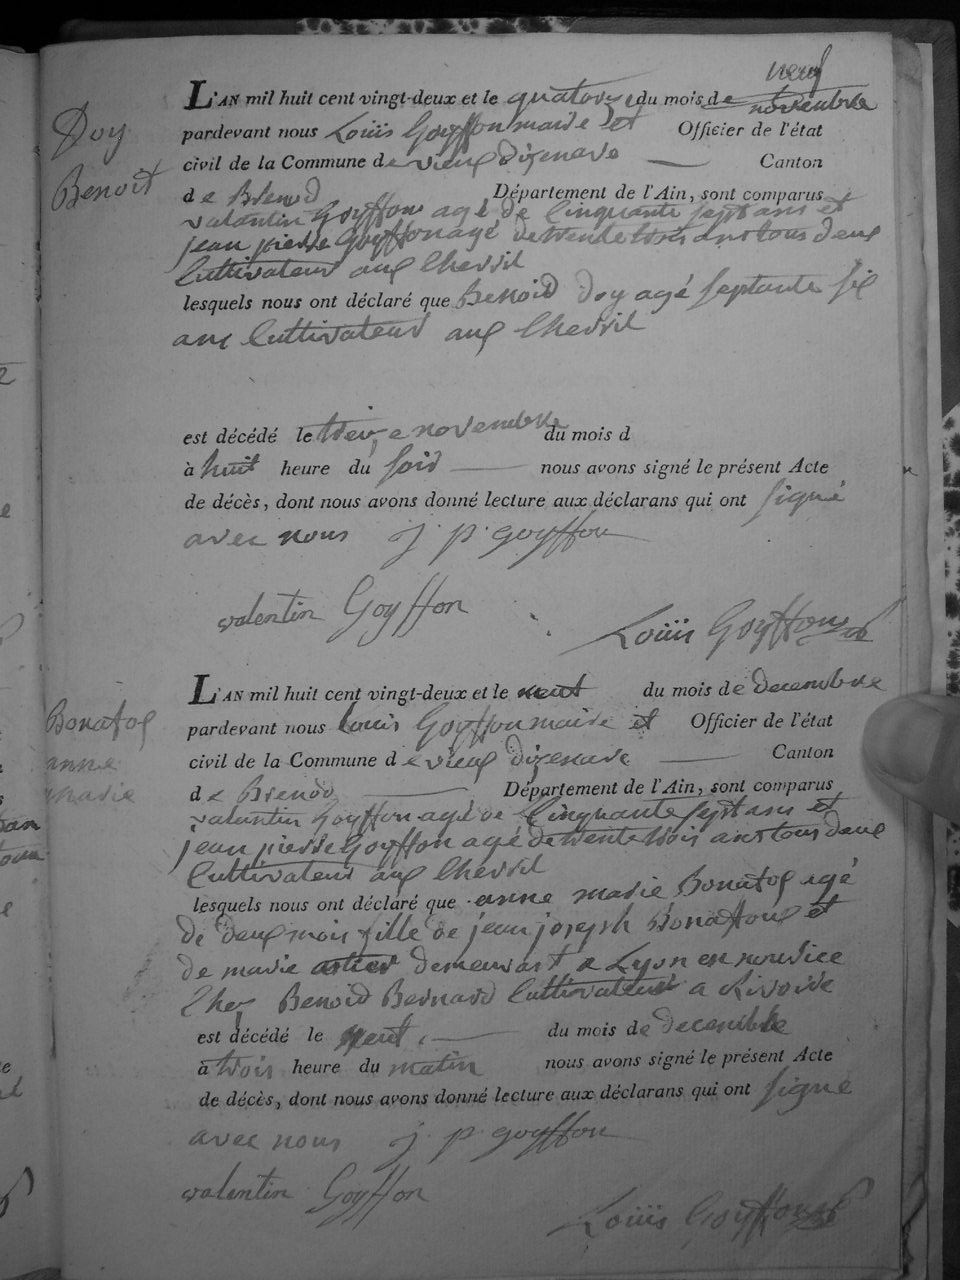 neuf
L'AN mil huit cent vingt-deux et le quatorze du mois de novembre
Doy
pardevant nous Louis Goyffon maire et Officier de l'état
civil de la Commune de vieux dizenave Canton
Benoit
de Brenod Département de l'Ain, sont comparus
valantin Goyffon agé de Cinquante sept ans et
jean pierre Goyffon agé de trente trois ans tous deux
Cultivateur aux Chevril
lesquels nous ont déclaré que Benoid doy agé septante six
ans Cultivateur aux Chevril
est décédé le treize novembre du mois d
à huit heure du soir nous avons signé le présent Acte
de décès, dont nous avons donné lecture aux déclarans qui ont signé
avec nous j. p. goyffon
valentin Goyffon
Louis Goyffon
L'AN mil huit cent vingt-deux et le neuf du mois de decembre
Bonafox
pardevant nous louis Goyffon maire et Officier de l'état
civil de la Commune de vieux dizenave Canton
anne
marie
de Brenod Département de l'Ain, sont comparus
valantin Goyffon agé de Cinquante sept ans et
jean pierre Goyffon agé de trente trois ans tous deux
Cultivateur aux Chevril
lesquels nous ont déclaré que anne marie Bonafox agé
de deux mois fille de jean joseph Bonaffoux et
de marie demeurant a Lyon en nourice
Chez Benoid Bernard Cultivateur a Rivoire
est décédé le neuf du mois de decembre
à trois heure du matin nous avons signé le présent Acte
de décès, dont nous avons donné lecture aux déclarans qui ont signé
avec nous j. p. goyffon
valentin Goyffon
Louis Goyffon